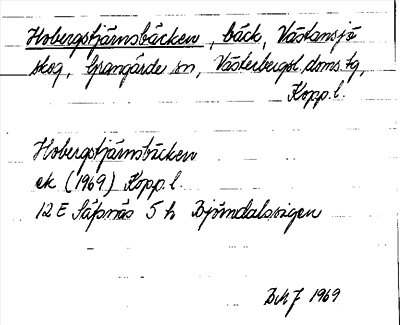 Hobergstjärnsbäcken, bäck, Västansjö
skog, Grangärde sn, Västerbergsl. doms. fg,
Kopp. l.
Hobergstjärnsbäcken
ek (1969) Kopp. l.
12 E Säfsnäs 5 h Björndalsvigen
1969